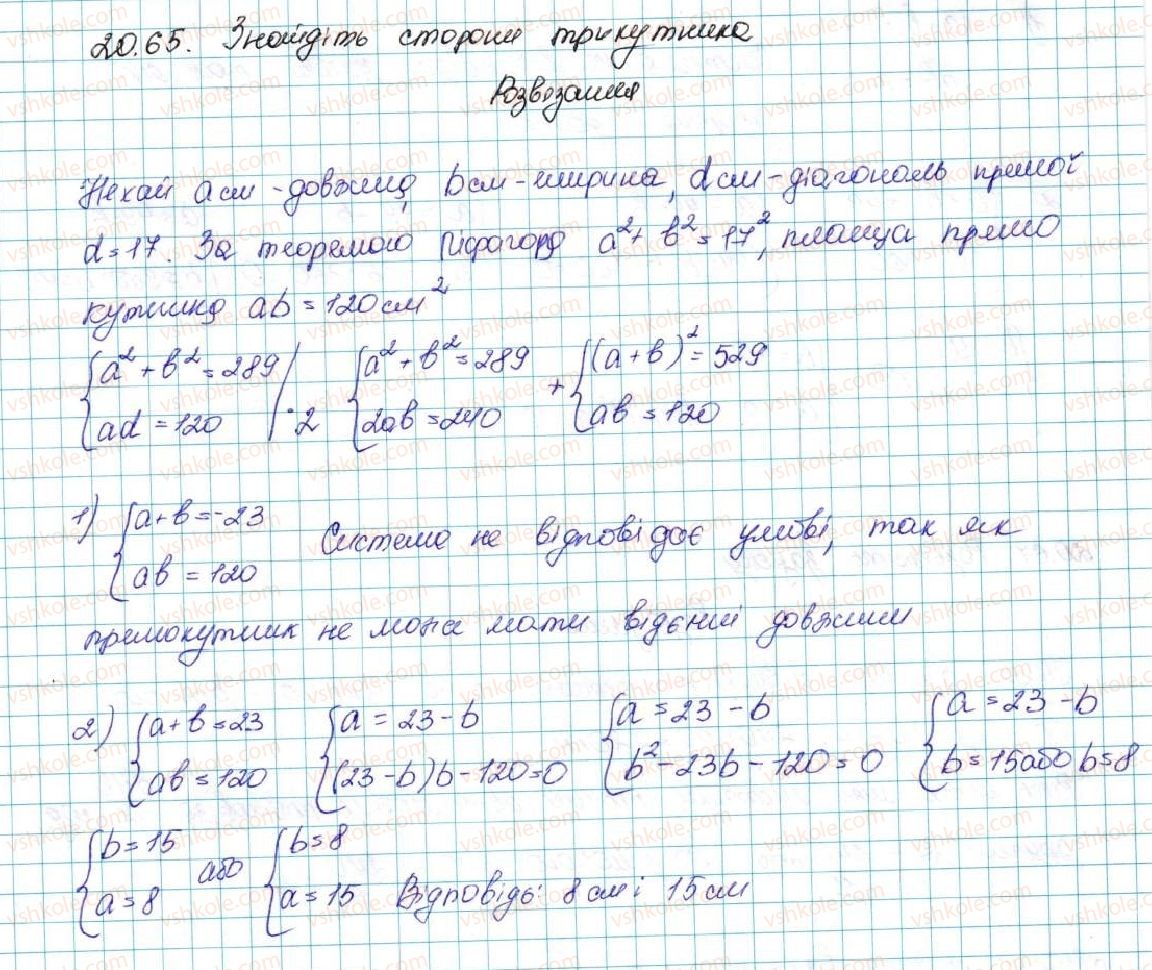 20.65. Знайдіть сторони трикутника
Розвязання
Нехай a см - довжина, b см - ширина, d см - діагональ прямої
d = 17. За теоремою Піфагора a² + b² = 17², площа прямо
кутника ab = 120 см²
{a² + b² = 289 | {a² + b² = 289 + {(a + b)² = 529
{ad = 120 | · 2 {2ab = 240 {ab = 120
1) {a + b = -23
{ab = 120 Система не відповідає умові, так як
прямокутник не може мати відємні довжини
2) {a + b = 23 {a = 23 - b {a = 23 - b {a = 23 - b
{ab = 120 {(23 - b)b - 120 = 0 {b² - 23b - 120 = 0 {b = 15 або b = 8
{b = 15 або {b = 8
{a = 8 {a = 15 Відповідь: 8 см і 15 см